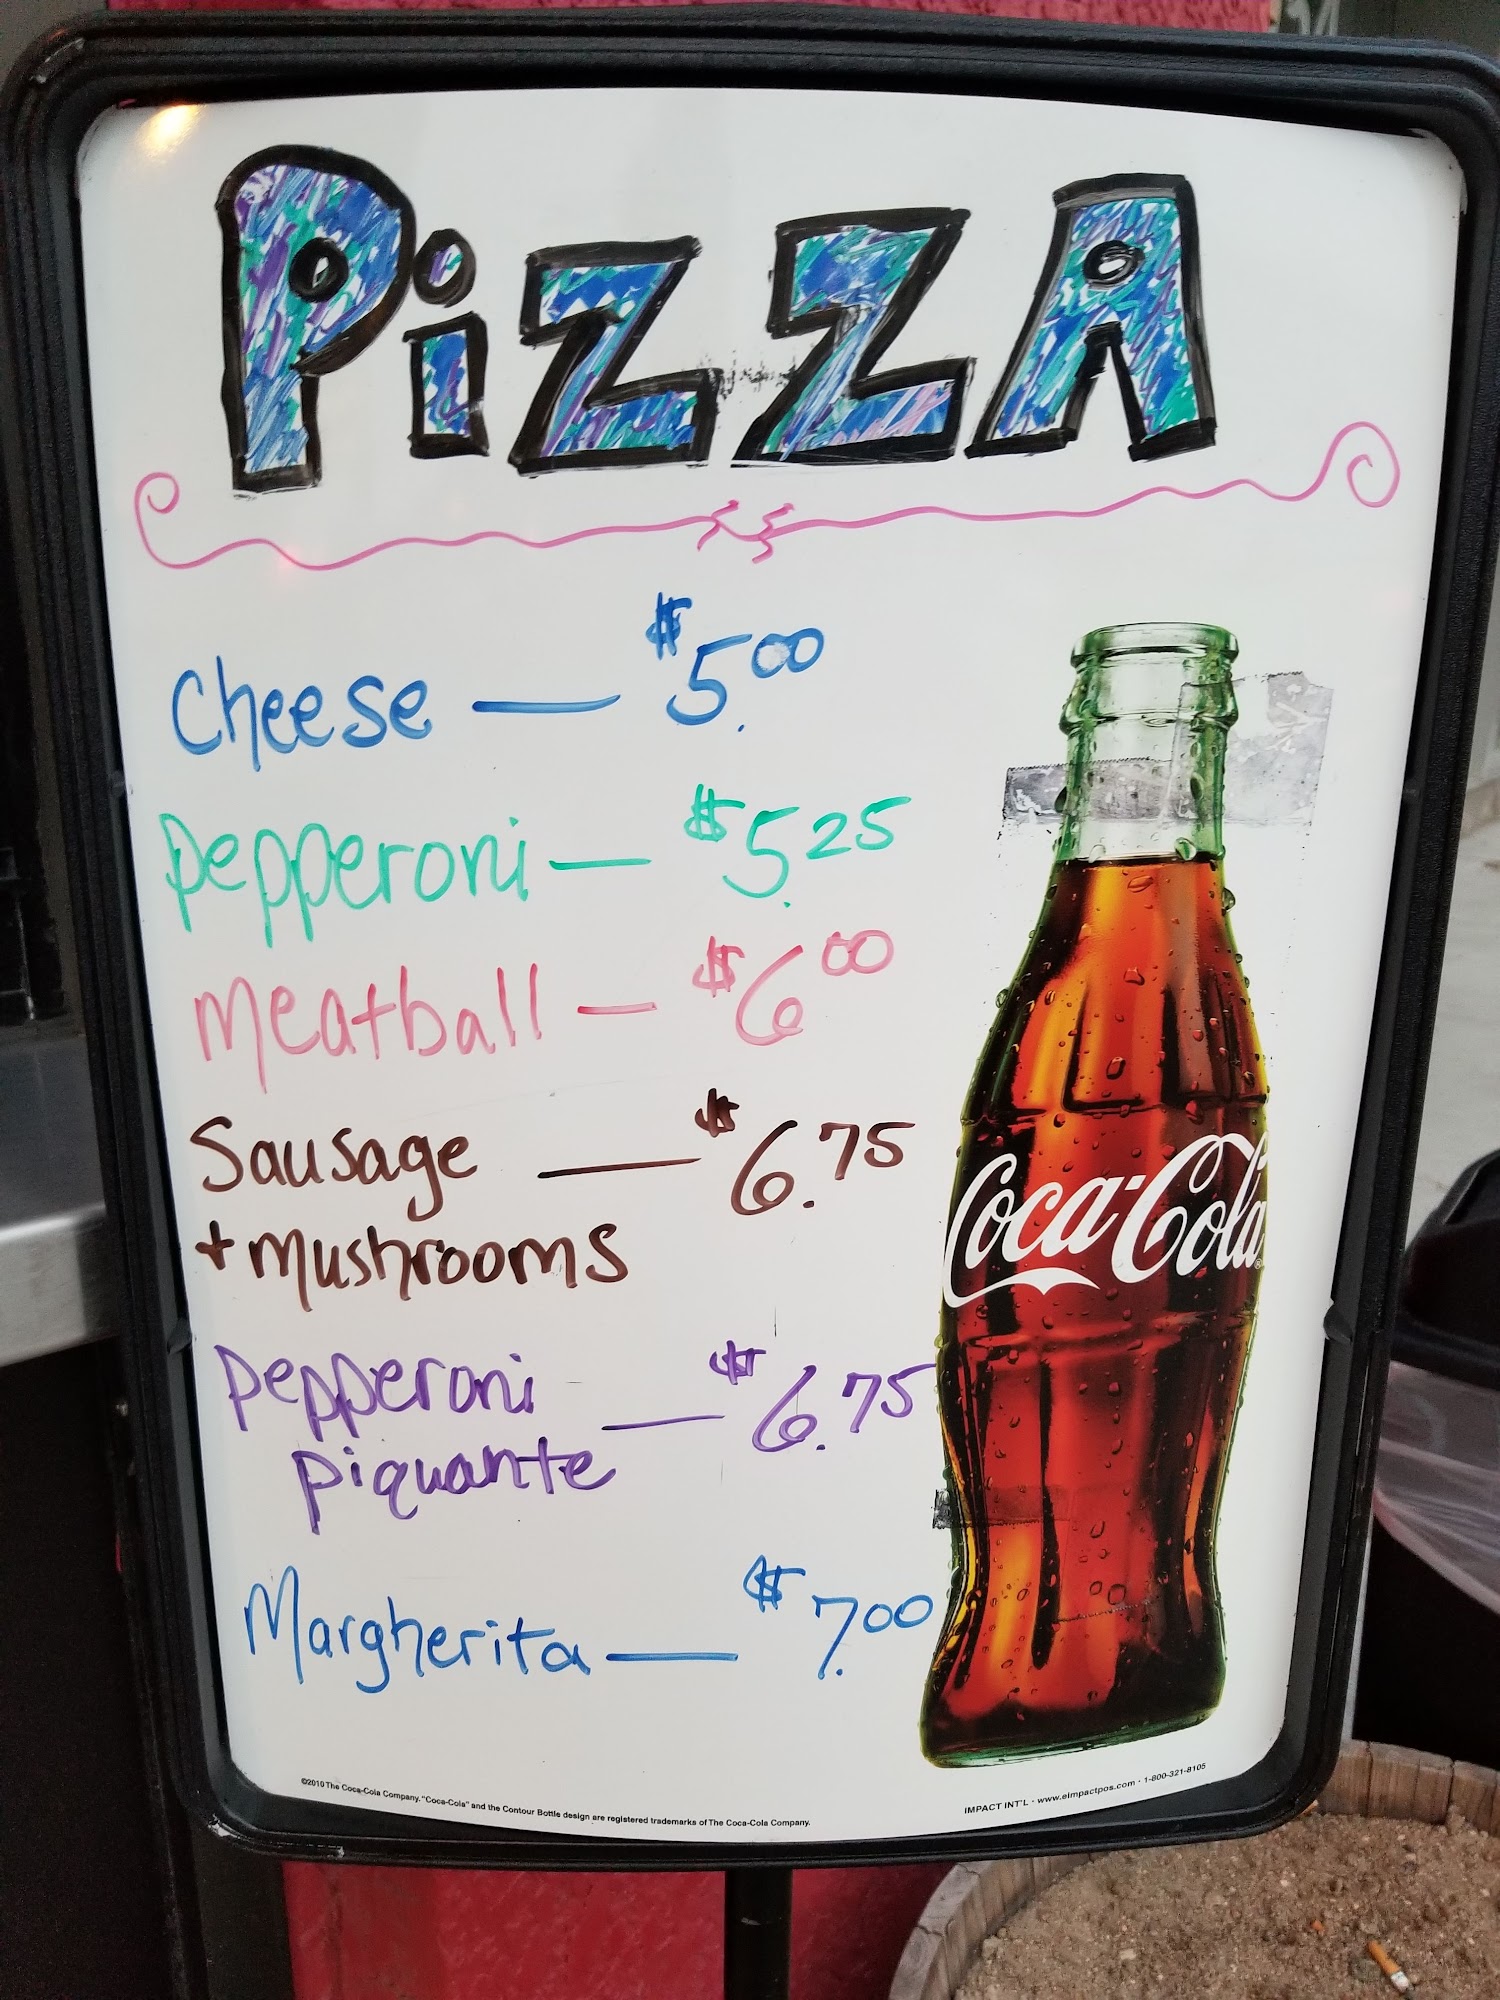 PiZZA
Cheese — $5.00
Pepperoni — $5.25
Meatball — $6.00
Sausage — $6.75
+ mushrooms
Pepperoni — $6.75
piquante
Margherita — $7.00
Coca-Cola
©2010 The Coca-Cola Company. "Coca-Cola" and the Contour Bottle design are registered trademarks of The Coca-Cola Company.
IMPACT INT'L · www.eimpactpos.com · 1-800-321-8105